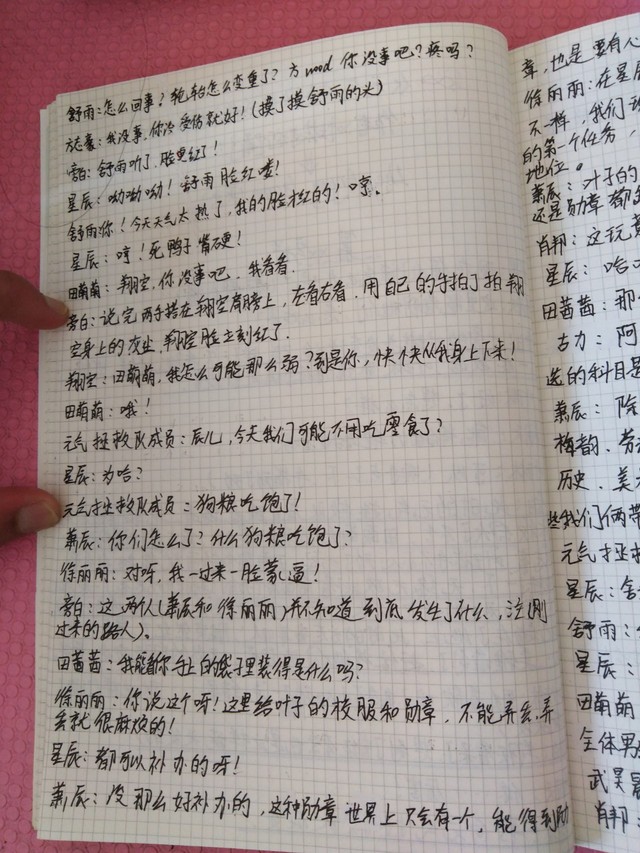 舒雨：怎么回事？轮胎怎么变重了？方wood 你没事吧？疼吗？
方志豪：我没事，你没受伤就好！（摸了摸舒雨的头）
旁白：舒雨听了，脸更红了！
星辰：呦呦呦！舒雨脸红喽！
舒雨：你！今天天气太热了，我的脸才红的！哼。
星辰：哼！死鸭子嘴硬！
田萌萌：翔空，你没事吧，我看看
旁白：说完两手搭在翔空肩膀上，左看右看，用自己的手拍了拍翔
空身上的灰尘，翔空脸立刻红了。
翔空：田萌萌，我怎么可能那么弱？到是你，快快从我身上下来！
田萌萌：哦！
元气拯救队成员：辰儿，今天我们可能不用吃零食了？
星辰：为啥？
元气拯救队成员：狗粮吃饱了！
萧辰：你们怎么了？什么狗粮吃饱了？
徐丽丽：对呀，我一过来一脸蒙逼！
旁白：这两个人（萧辰和徐丽丽）并不知道到底发生了什么，注：刚
过来的路人）。
田茜茜：我能看你手上的袋子里装得是什么吗？
徐丽丽：你说这个呀！这里给叶子的校服和勋章，不能弄丢，弄
丢就很麻烦的！
星辰：都可以补办的呀！
萧辰：没那么好补办的，这种勋章世界上只会有一个，能得到勋
章，也是要有心
徐丽丽：在星辰
不一样，我们
的第一个任务，
地位。
萧辰：叶子的
还是勋章都
肖邦：这玩
星辰：哈
田茜茜：那
古力：阿
选的科目是
萧辰：除
梅韵、劳
历史、美
些我们俩带
元气拯救
星辰：舍
舒雨：
星辰：
田萌萌
全体男
武昊
肖邦：